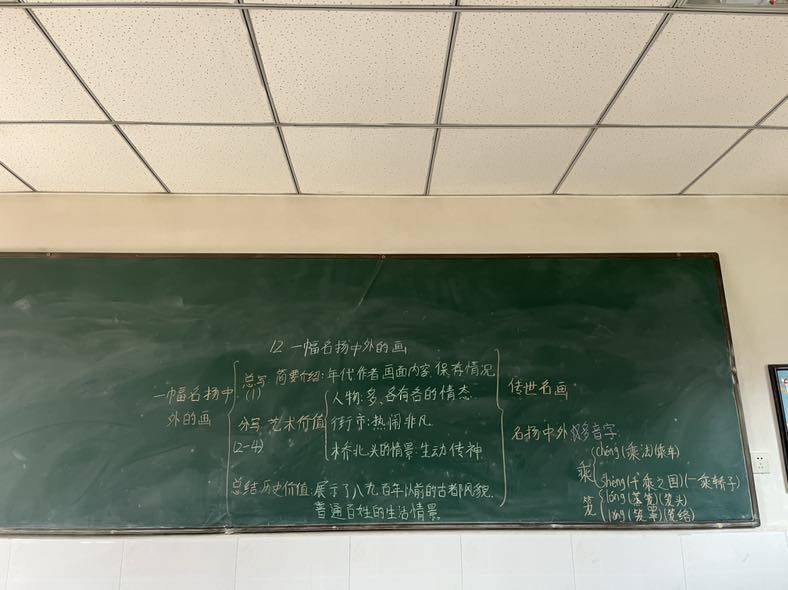 12 一幅名扬中外的画
一幅名扬中
外的画
总写 简要介绍:年代 作者 画面内容 保存情况
(1)
分写 艺术价值
(2-4)
人物:多、各有各的情态
街市:热闹非凡
桥北头的情景:生动传神
总结 历史价值:展示了八九百年以前的古都风貌、
普通百姓的生活情景
传世名画
名扬中外
多音字
乘
chéng(乘法)(乘车)
shèng(千乘之国)(一乘轿子)
笼
lóng(蒸笼)(笼头)
lǒng(笼罩)(笼络)